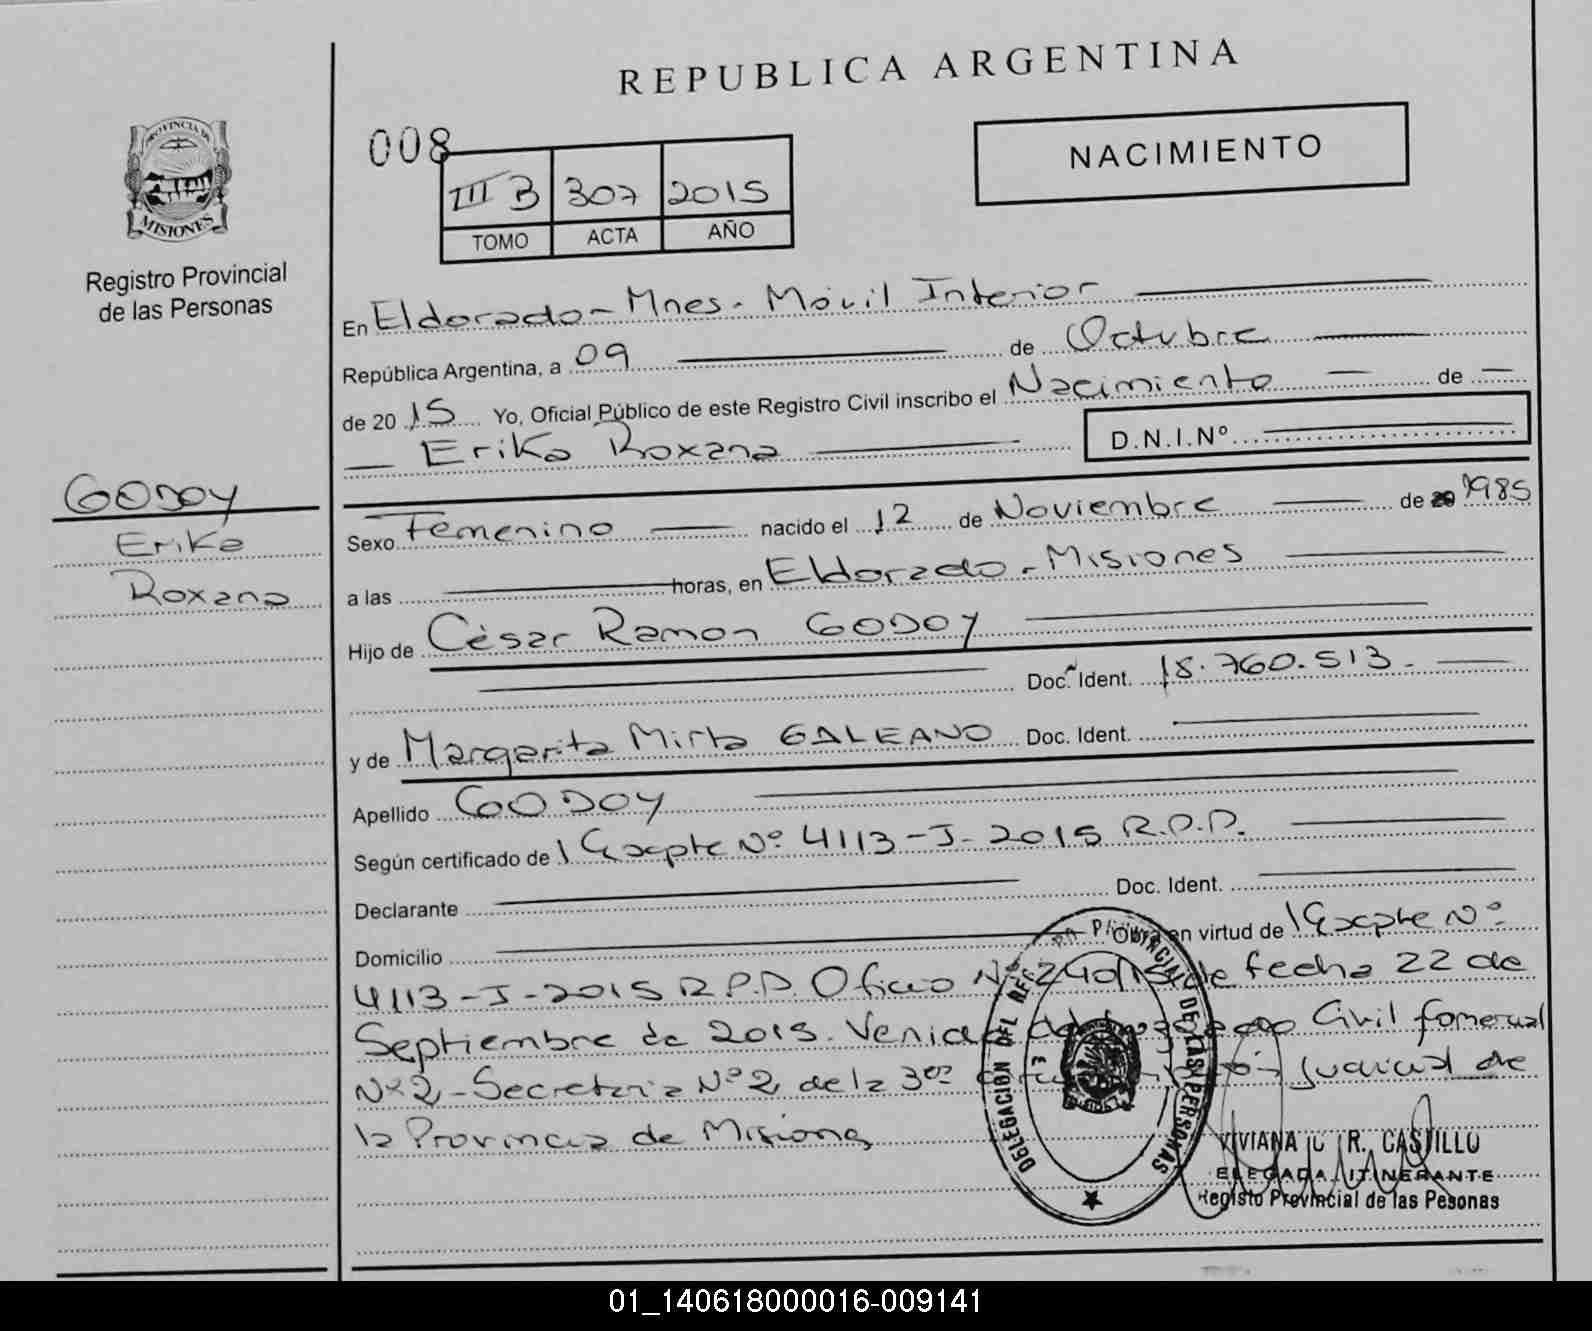 REPUBLICA ARGENTINA
NACIMIENTO
008
III B 307 2015
TOMO ACTA AÑO
PROVINCIA DE
MISIONES
Registro Provincial
de las Personas
GODOY
Erika
Roxana
En Eldorado - Mnes. Móvil Interior
República Argentina, a 09 de Octubre
de 2015 Yo, Oficial Público de este Registro Civil inscribo el Nacimiento — de —
— Erika Roxana D.N.I.Nº
Sexo Femenino nacido el 12 de Noviembre de 20 1985
a las horas, en Eldorado - Misiones
Hijo de César Ramon GODOY
Doc. Ident. 18.760.513.
y de Margarita Mirta GALEANO Doc. Ident.
Apellido GODOY
Según certificado de Expte Nº 4113-J-2015 R.P.P.
Declarante Doc. Ident.
Domicilio en virtud de Expte Nº
4113-J-2015 R.P.P. Oficio Nº de fecha 22 de
Septiembre de 2015. Civil
Nº 2 - Secretaria Nº 2 de la 3era Judicial de
la Provincia de Misiones
DELEGACION DEL REG. PROVINCIAL DE LAS PERSONAS
VIVIANA R. CASTILLO
ELEGADA ITINERANTE
Registo Provincial de las Pesonas
01_140618000016-009141